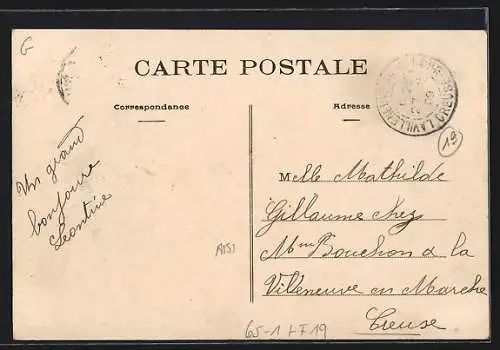 G
CARTE POSTALE
Correspondance
Adresse
19
Un grand
bonjour
Leontine
Melle Mathilde
Gillaume chez
Mme Bouchon a la
Villeneuve en Marche
Creuse
A151
65-1 + F19